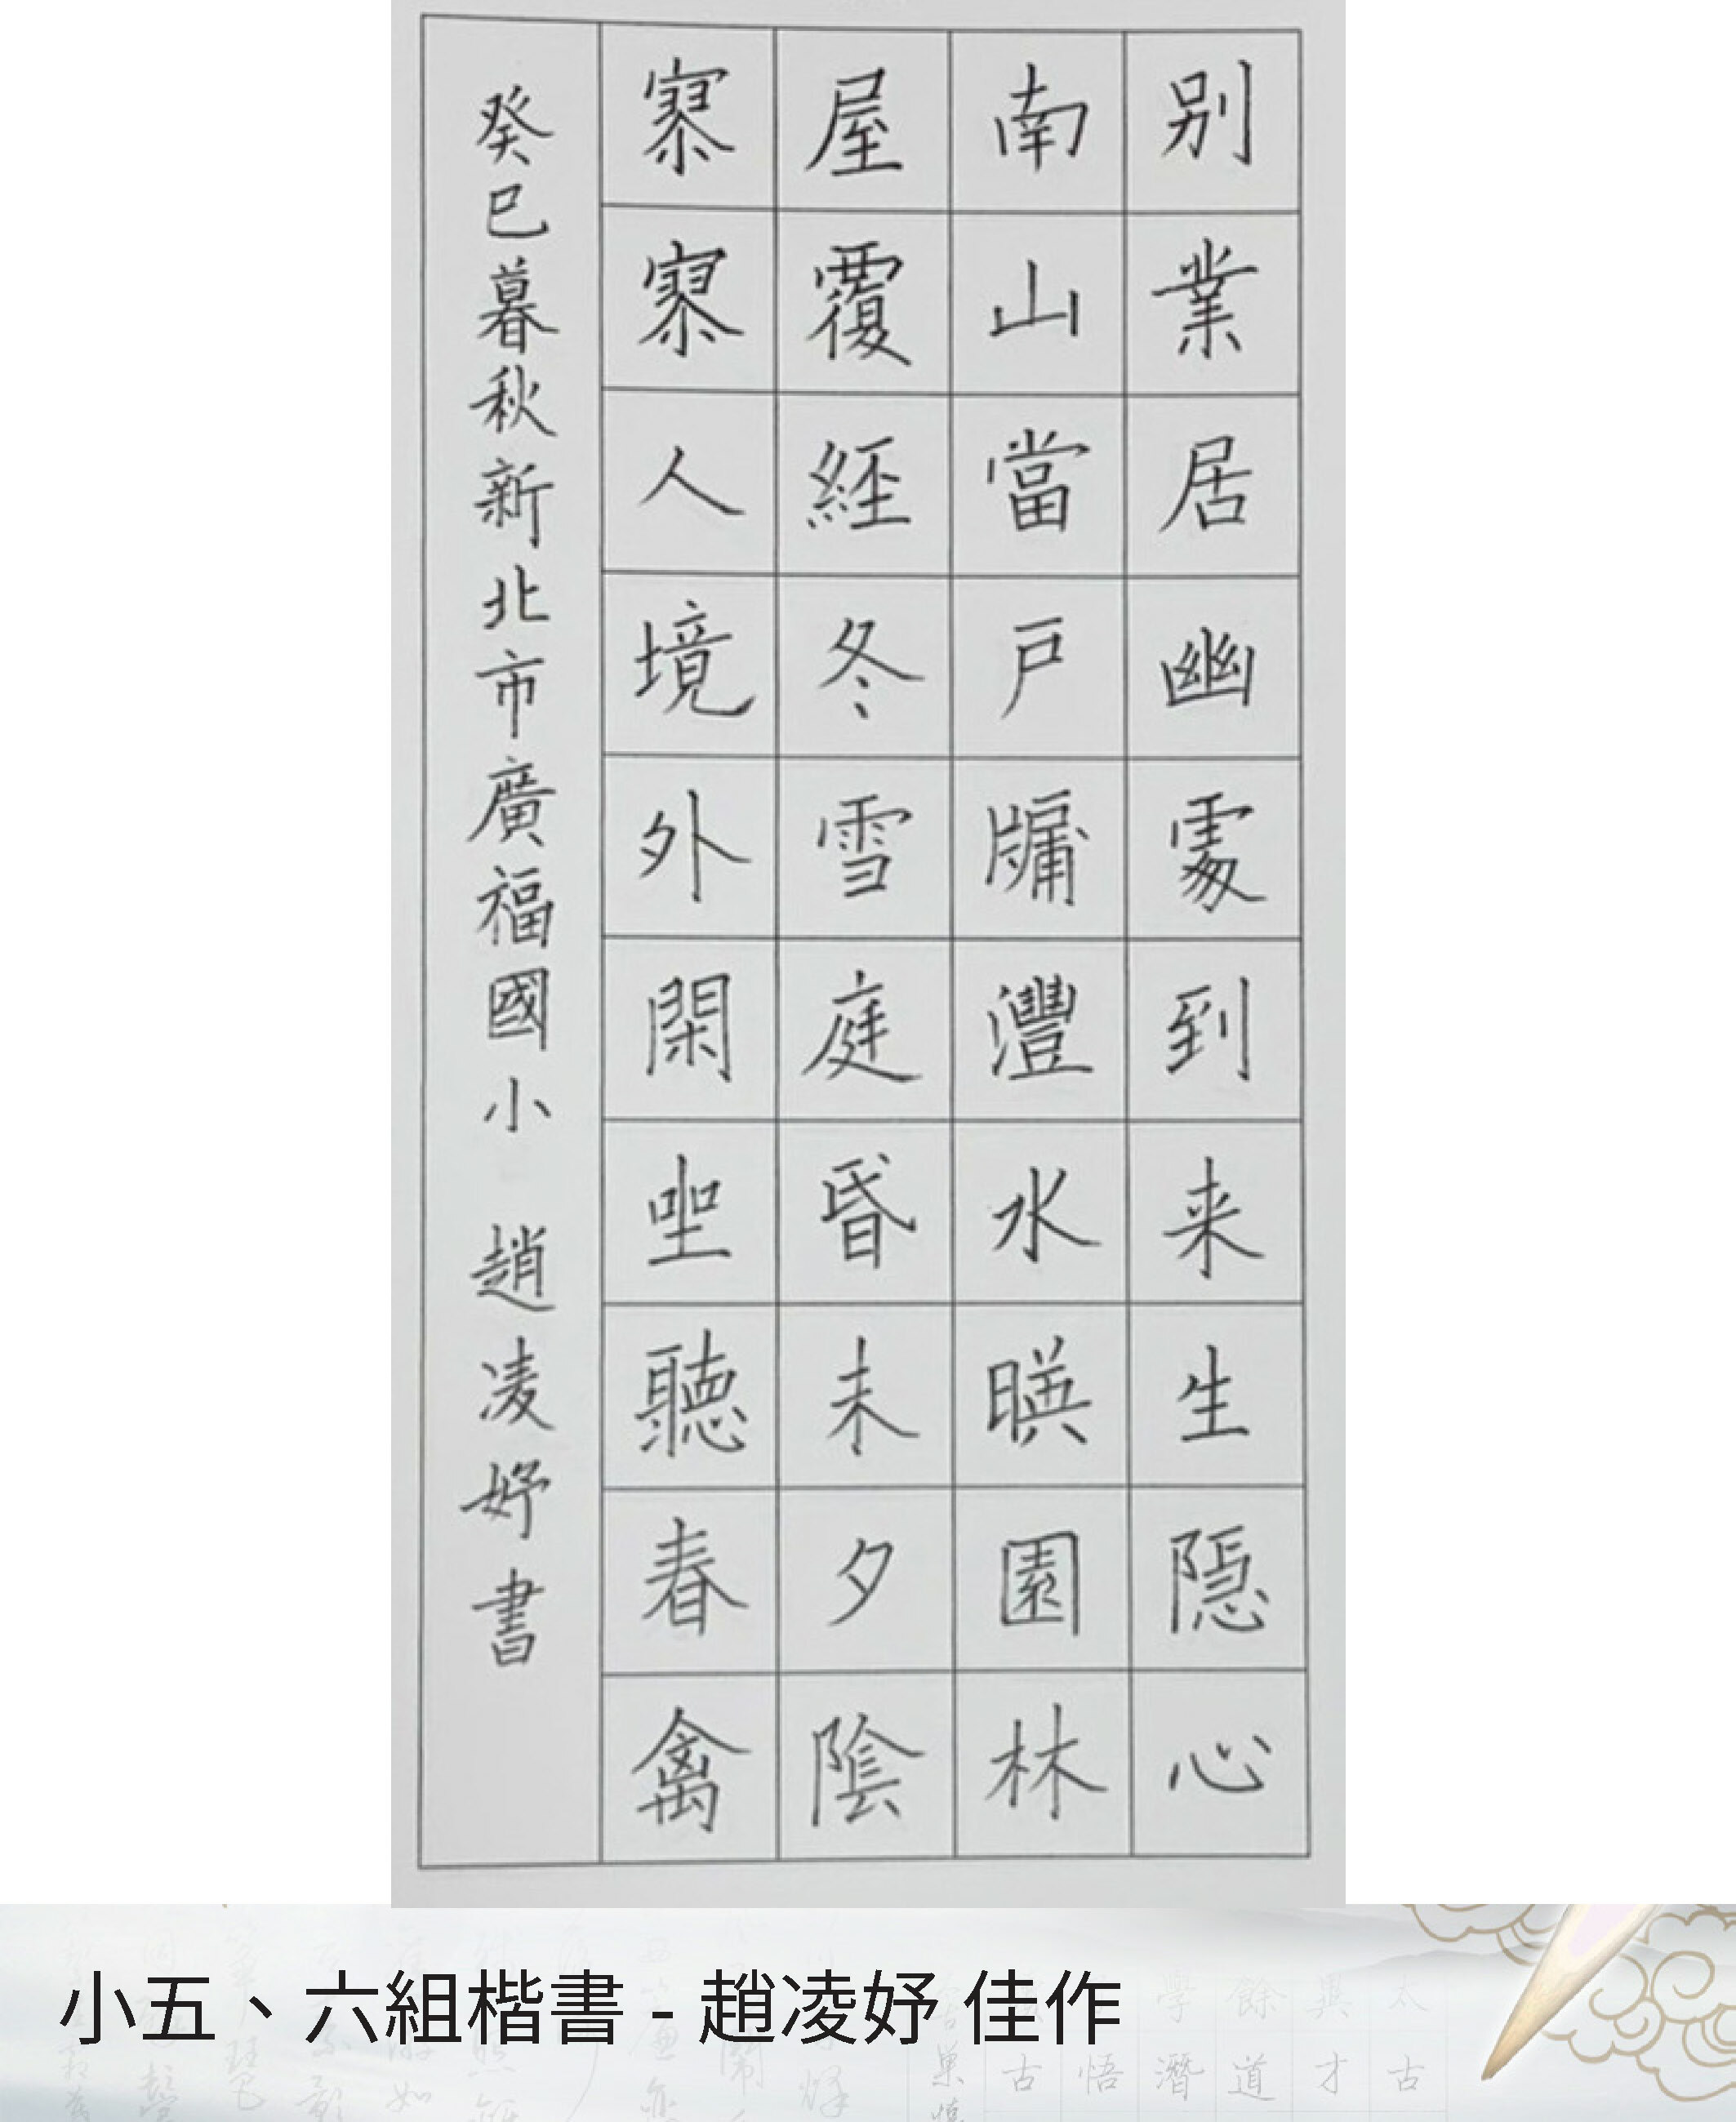 别業居幽處到来生隱心
南山當戶牖灃水暎園林
屋覆經冬雪庭昏未夕陰
寥寥人境外閑坐聽春禽
癸巳暮秋新北市廣福國小 趙凌妤書
小五、六組楷書 - 趙凌妤 佳作